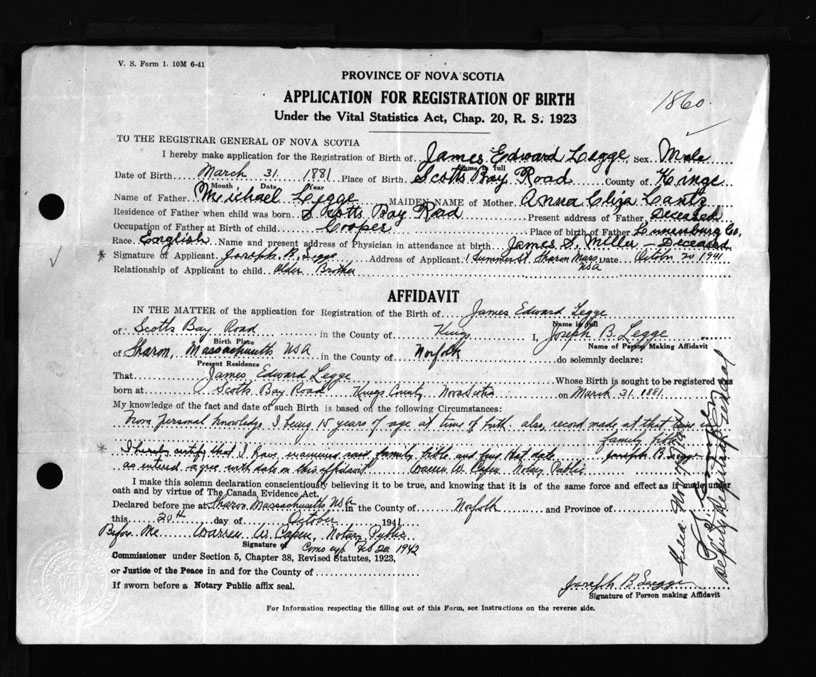 V. S. Form 1. 10M 6-41
PROVINCE OF NOVA SCOTIA
APPLICATION FOR REGISTRATION OF BIRTH
1860.
Under the Vital Statistics Act, Chap. 20, R. S. 1923
TO THE REGISTRAR GENERAL OF NOVA SCOTIA
I hereby make application for the Registration of Birth of James Edward Legge Sex Male
Name in full
Date of Birth March 31 1881 Place of Birth Scotts Bay Road County of Kings
Month Date Year
Name of Father Michael Legge MAIDEN NAME of Mother Anna Eliza Lantz
Residence of Father when child was born Scotts Bay Road Present address of Father Deceased
Occupation of Father at Birth of child Cooper Place of birth of Father Lunenburg Co.
Race English Name and present address of Physician in attendance at birth James S. Miller - Deceased
Signature of Applicant Joseph B. Legge Address of Applicant 1 Summer St Sharon Mass USA Date October 20 1941
Relationship of Applicant to child Older Brother
AFFIDAVIT
IN THE MATTER of the application for Registration of the Birth of James Edward Legge
Name in full
of Scotts Bay Road in the County of Kings I, Joseph B. Legge
Birth Place Name of Person Making Affidavit
of Sharon, Massachusetts USA in the County of Norfolk do solemnly declare:
Present Residence
That James Edward Legge Whose Birth is sought to be registered was
born at Scotts Bay Road Kings County Nova Scotia on March 31. 1881.
My knowledge of the fact and date of such Birth is based on the following Circumstances:
From personal knowledge I being 15 years of age at time of birth also, record made at that time in
family bible
I hereby certify that I have examined said family bible and find that date Joseph B. Legge
as entered agree with date on this affidavit Warren W. Capen Notary Public
I make this solemn declaration conscientiously believing it to be true, and knowing that it is of the same force and effect as if made under
oath and by virtue of The Canada Evidence Act.
Declared before me at Sharon Massachusetts USA in the County of Norfolk and Province of
this 20th day of October 1941
Before Me Warren W. Capen, Notary Public
Signature of Com exp. Feb 20 1942
Commissioner under Section 5, Chapter 38, Revised Statutes, 1923,
or Justice of the Peace in and for the County of
If sworn before a Notary Public affix seal.
Joseph B Legge
Signature of Person making Affidavit
For Information respecting the filling out of this Form, see Instructions on the reverse side.
Deputy Registrar General